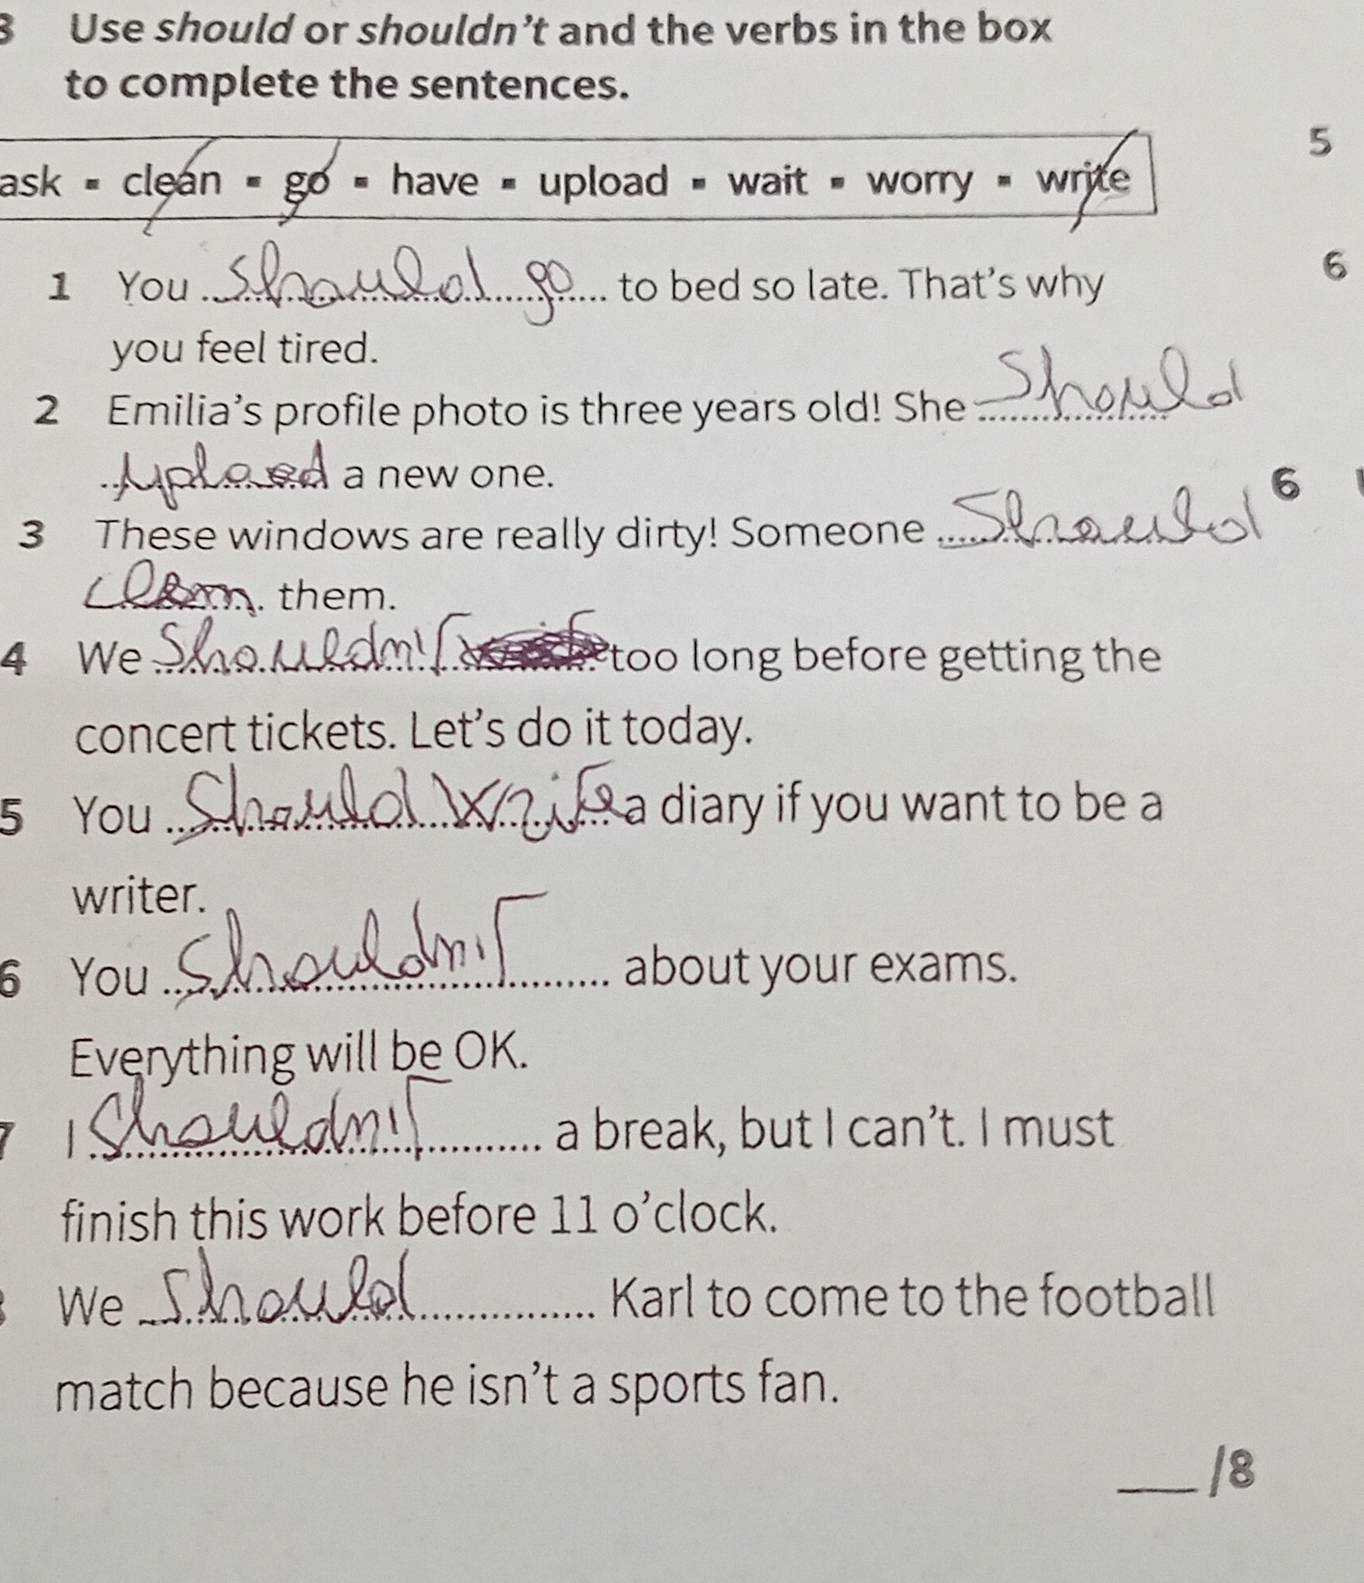 3 Use should or shouldn't and the verbs in the box
to complete the sentences.
ask ▪ clean ▪ go ▪ have ▪ upload ▪ wait ▪ worry ▪ write
5
6
1 You should go to bed so late. That's why
you feel tired.
2 Emilia's profile photo is three years old! She Should
upload a new one.
6
3 These windows are really dirty! Someone Should
clean them.
4 We Shouldn't too long before getting the
concert tickets. Let's do it today.
5 You Should write a diary if you want to be a
writer.
6 You Shouldn't about your exams.
Everything will be OK.
7 I Shouldn't a break, but I can't. I must
finish this work before 11 o'clock.
We Should Karl to come to the football
match because he isn't a sports fan.
___/8